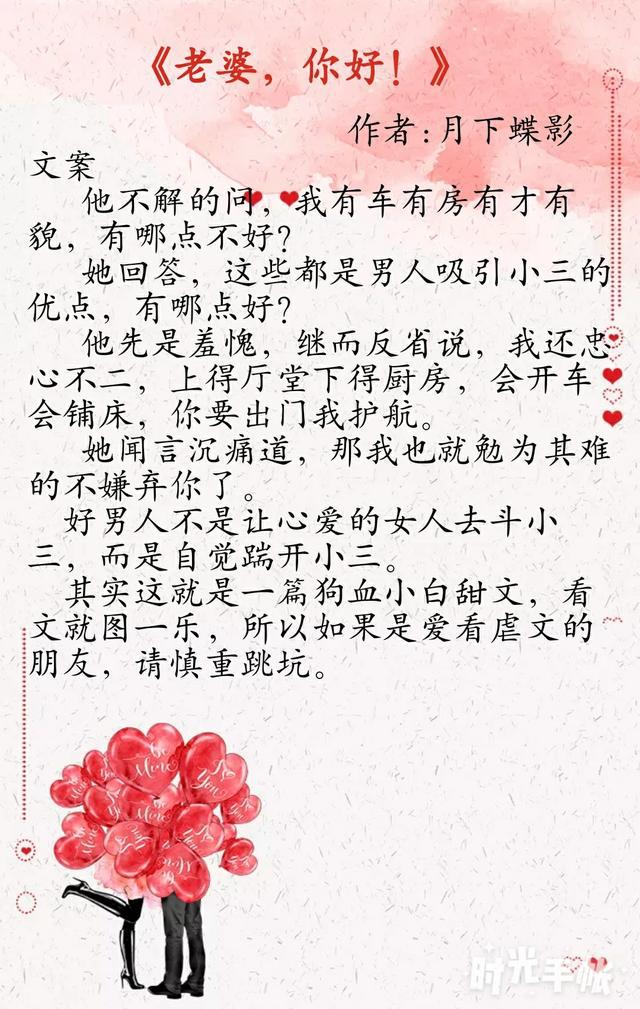 《老婆，你好！》
作者:月下蝶影
文案
他不解的问，我有车有房有才有
貌，有哪点不好？
她回答，这些都是男人吸引小三的
优点，有哪点好？
他先是羞愧，继而反省说，我还忠
心不二，上得厅堂下得厨房，会开车
会铺床，你要出门我护航。
她闻言沉痛道，那我也就勉为其难
的不嫌弃你了。
好男人不是让心爱的女人去斗小
三，而是自觉踹开小三。
其实这就是一篇狗血小白甜文，看
文就图一乐，所以如果是爱看虐文的
朋友，请慎重跳坑。
be
Mine
I
You
be
Mine
时光手帐